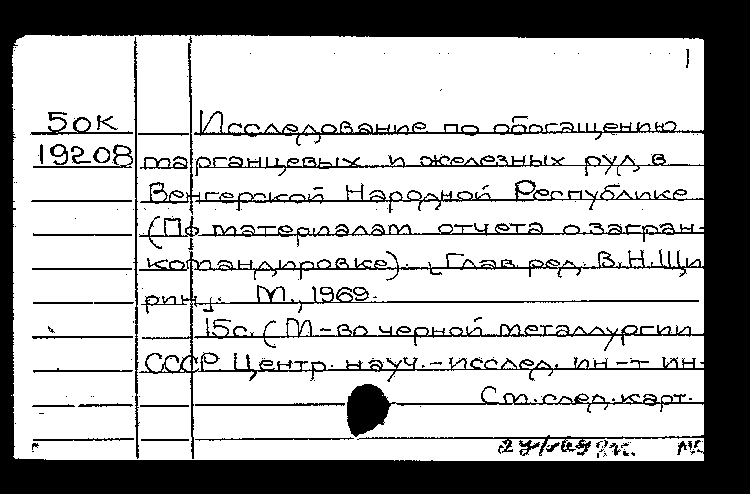 1
50К Исследование по обогащению
19208 марганцевых и железных руд в
Венгерской Народной Республике
(По материалам отчета о загран-
командировке). [Глав ред. В.Н.Щи
рин]. М., 1969.
15с. (М-во черной металлургии
СССР Центр. науч.-исслед. ин-т ин-
См. след. карт.